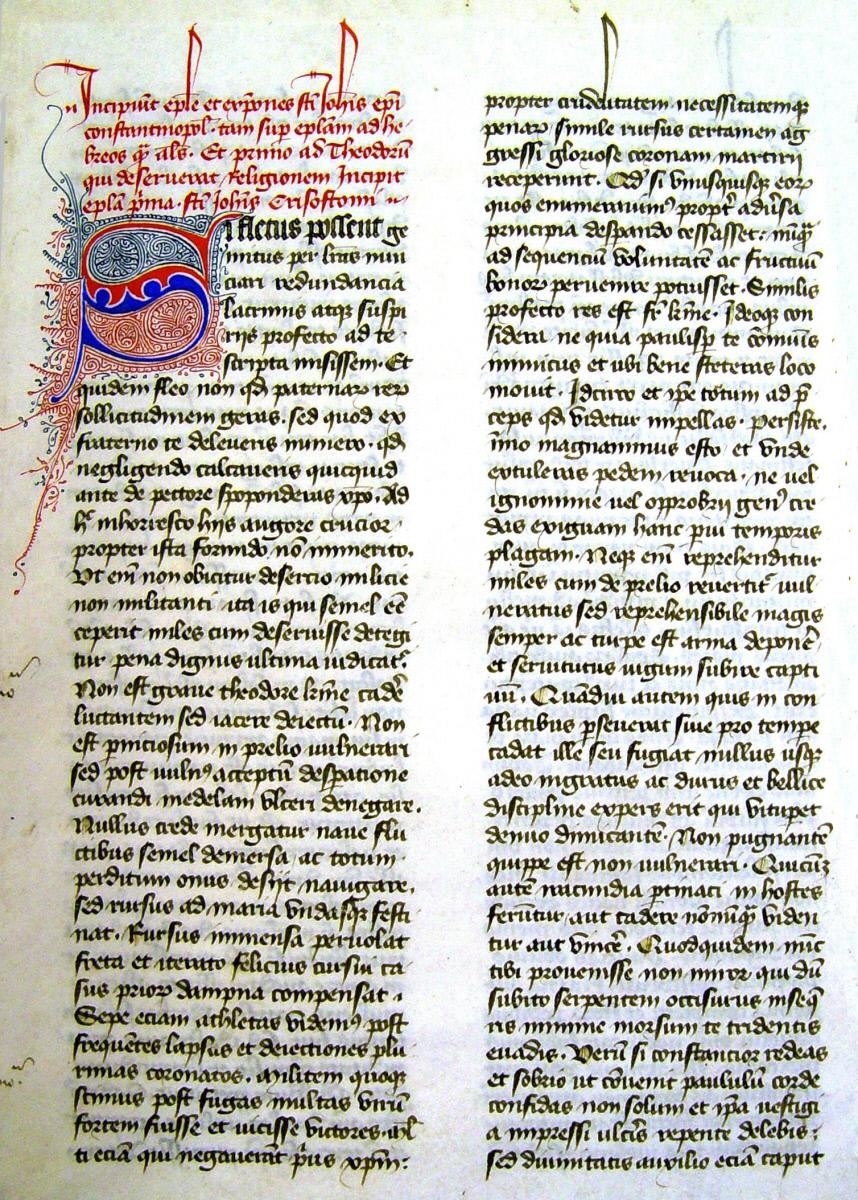 Incipiūt eple et exp̄ones scī Joh̄is ep̄i
constantinopol̄. tam sup eplam ad he-
breos q̄ȝ al̄s. Et primo ad Theodorū
qui deseruerat Religionem Incipit
epl̄a p̄ma. scī Joh̄is Crisostomi
Si fletus possent ge
mitus per lr̄as nun
ciari redundancia
lacrimis atqȝ suspi
rijs profecto ad te
scripta misissem. Et
quidem fleo non qd̄ paternaꝝ reꝝ
sollicitudinem geras. sed quod ex
fraterno te deleueris numero. qd̄
negligendo calcaueris quicquid
ante de pectore spoponderas xp̄o. Ad
h̄ inhorresco hijs augore crucior
propter ista formido nō immerito.
Vt em̄ non obicitur desercio milicie
non militanti ita is qui semel eē
ceperit miles cum deseruisse detegi
tur pena dignus ultima iudicat᷑.
Non est graue theodore kr̄me cade᷑
luctantem sed iacere deiectū. Non
est p̄niciosum in prelio uulnerari
sed post uulnꝰ acceptū desperatione
curandi medelam vlceri denegare.
Nullus crede mergatur naue flu
ctibus semel demersa ac totum
perditum onus desijt nauigare.
sed rursus ad maria vndasqȝ festi
nat. Rursus immensa peruolat
freta et iterato felicius cursui ca
sus prioꝝ dampna compensat.
Sepe eciam athletas videmꝰ post
frequētes lapsus et deiectiones plu
rimas coronatos. Militem quoqȝ
scimus post fugas multas virū
fortem fuisse et uicisse victores. ml̄
ti eciā qui negauerāt p̄us xp̄m:
propter crudelitatem necessitatemqȝ
penaꝝ simile rursus certamen ag
gressi gloriose coronam martirij
receperunt. Qd̄ si vnusquisqȝ eoꝝ
quos enumerauimꝰ propt̄ adūsa
principia despando cessasset: nūqȝ̄
ad sequenciū voluntatē ac fructuū
bonoꝝ peruenire potuisset. Similis
profecto res est sī kr̄me. Ideoqȝ con
sidera ne quia paulisp̄ te cōmuīs
inimicus et ubi bene steteras loco
mouit. Idcirco et ip̄e totum ad p̄
ceps qd̄ videtur impellas. persiste.
īmo magnanimus esto et vnde
extuleras pedem reuoca. ne uel
ignominie uel opprobrij genꝰ cre
das exiguam hanc p̄ui temporis
plagam. Neqȝ em̄ reprehenditur
miles cum de prelio reuertit᷑ uul
neratus sed reprehensibile magis
semper ac turpe est arma depon᷑e
et seruitutus uigum subire capti
uū. Quādiu autem quis in con
flictibus p̄seuerat siue pro tempe
cadat ille seu fugiat nullus usqȝ
adeo ingratus ac durus et bellice
discipline expers erit qui vitupet
denuo dimicantē. Non pugnantē
quippe est non uulnerari. Quicūqȝ
autē iracundia p̄tinaci in hostes
ferūtur aut cadere nōnūqȝ̄ viden
tur aut vinc᷑e. Quodquidem nūc
tibi prouenisse non miror qui dū
subito serpentem occisurus inseq̄
ris minime morsum te tridentis
euadis. Verū si constancior redeas
et sobrio ut cōuenit paululū corde
confidas non solum et ip̄a uestigi
a impressi ulc̄is repente delebis:
sed diuinitatis auxilio eciā caput